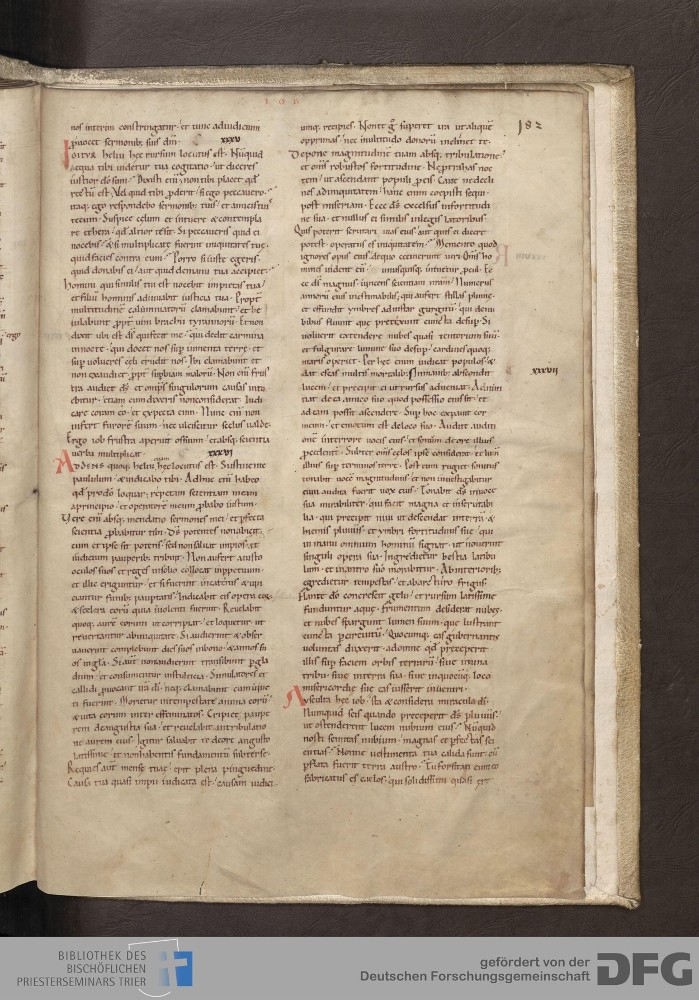 IOB
182
nos interim constringatur · et tunc adiudicium
provocet sermonibus suis dm̄ · xxxv
Igitur heliu hec rursum locutus est · Nūquid
aequa tibi videtur tua cogitatio · ut diceres
iustior dō sum · Dixisti enī non tibi placet qd̄
rectū est · Vel quid tibi pderit si ego peccavero ·
itaq; ego respondebo sermonibꝰ tuis · et amicis tuis
tecum · Suspice celum et intuere & contempla
re ethera · qd̄ altior te sit · Si peccaveris quid ei
nocebis · & si multiplicate fuerint iniquitates tue ·
quid facies contra eum · Porro si iuste egeris ·
quid donabis ei · aut quid demanu tua accipiet ·
Homini qui similis tui est nocebit impietas tua ·
et filiū hominis adiuvabit iusticia tua · Propt̄
multitudinē calumniatorū clamabunt · et he
iulabunt ppt̄ vim brachii tyrannorū · Et non
dixit ubi est ds̄ qui fecit me · qui dedit carmina
in nocte · qui docet nos sup iumenta terre · et
sup volucres celi erudit nos · Ibi clamabunt et
non exaudiet · ppt̄ supbiam malorū · Non enī frus
tra audiet ds̄ · et omps̄ singulorum causas intu
ebitur · etiam cum dixeris non considerat · Iudi
care coram eo · et expecta eum · Nunc enī non
infert furorē suum · nec ulciscitur scelus valde ·
Ergo iob frustra aperit os suum · et absq; scientia
verba multiplicat · xxxvi
Addens quoq; heliu · hec locutus est · Sustine me
paululum · & indicabo tibi · Adhuc enī habeo
qd̄ pro dō loquar · repetam scientiam meam
a principio · et operatorē meum pbabo iustum ·
Vere enī absq; mendatio sermones mei · et pfecta
scientia pbabitur tibi · Ds̄ potentes non abicit ·
cum et ipse sit potens · sed non salvat impios · et
iudicium pauperibꝰ tribuit · Non aufert a iusto
oculos suos · et reges in solio collocat inppetuum ·
et illic eriguntur · et si fuerint in catenis & vin
ciantur funibꝰ paupertatis · Indicabit eis opera eoꝝ
& scelera eorū quia violenti fuerint · Revelabit
quoq; aurē eorum ut corripiat · et loquetur ut
revertantur ab iniquitate · Si audierint & obser
vaverint complebunt dies suos in bono · & annos su
os in gl̄a · Si aut̄ non audierint transibunt p gla
dium · et consumentur in stulticia · Simulatores et
callidi pvocant irā di · neq; clamabunt cum vinc
ti fuerint · Morietur in tempestate anima eorū ·
& vita eorum inter effeminatos · Eripiet paupe
rem de angustia sua · et revelabit in tribulatio
ne aurem eius · Igitur salvabit te de ore angusto
latissime · et non habentis fundamentū subter se ·
Requies aut̄ mense tuae · erit plena pinguedine ·
Causa tua quasi impii iudicata est · causam iudici
umq; recipies · Non te g̊ superet ira ut aliquē
opprimas · nec multitudo donorū inclinet te ·
Depone magnitudinē tuam absq; tribulatione ·
et om̄s robustos fortitudine · Ne ptrahas noc
tem · ut ascendant populi p eis · Cave ne decli
nes ad iniquitatem · hanc enim coepisti sequi
post miseriam · Ecce ds̄ excelsus in fortitudi
ne sua · et nullus ei similis in legis latoribus ·
Quis poterit scrutari vias eius · aut quis ei dicere
potest · operatus es iniquitatem · Memento quod
ignores opus eius · de quo cecinerunt viri · Om̄s ho
mines vident eū · unusquisq; intuetur pcul · Ec
ce ds̄ magnus vincens scientiam nram · Numerus
annorū eius inestimabilis · qui aufert stillas pluvie ·
et effundit ymbres ad instar gurgitū · qui de nu
bibus fluunt que pretexunt cuncta desup · Si
voluerit extendere nubes quasi tentorium suū ·
et fulgurare lumine suo desup · cardines quoq;
maris operiet · Per hec enim iudicat populos · &
dat escas multis mortalibꝰ · In manibꝰ abscondit
lucem · et precepit ei ut rursus adveniat · Adnun
tiat de ea amico suo quod possessio eius sit · et
ad eam possit ascendere · Sup hoc expavit cor
meum · et emotum est de loco suo · Audiet auditi
onē in terrore vocis eius · et sonum de ore illius
pcedentē · Subter om̄s celos ipse considerat · et lum̄
illius sup terminos terre · Post eum rugiet sonitus
tonabit voce magnitudinis · et non investigabitur
cum audita fuerit vox eius · Tonabit ds̄ in voce
sua mirabiliter · qui facit magna et inscrutabi
lia · qui precepit nivi ut descendat in terrā · &
hiemis pluviis · et ymbri fortitudinis sue · qui
in manu omnium hominū signat · ut noverint
singuli opera sua · Ingredietur bestia latibu
lum · et in antro suo morabitur · Ab interioribꝰ
egredietur tempestas · et ab arcturo frigus ·
Flante dō concrescit gelu · et rursum latissime
funduntur aque · Frumentum desiderat nubes ·
et nubes spargunt lumen suum · que lustrant
cuncta per circuitū · Quocumq; eas gubernantis
voluntas duxerit · ad omne qd̄ preceperit
illis sup faciem orbis terrarū · sive in una
tribu · sive in terra sua · sive in quocūq; loco
misericordie sue eas iusserit inveniri ·
xxxvii
Ausculta hec iob · sta & considera miracula di ·
Numquid scis quando preceperit ds̄ pluviis ·
ut ostenderent lucem nubium eius · Nūquid
nosti semitas nubium · magnas et pfectas sci
entias · Nonne vestimenta tua calida sunt · cū
pflata fuerit terra austro · Tu forsitan cum eo
fabricatus es caelos · qui solidissimi quasi ere
BIBLIOTHEK DES
BISCHÖFLICHEN
PRIESTERSEMINARS TRIER
gefördert von der
Deutschen Forschungsgemeinschaft
DFG